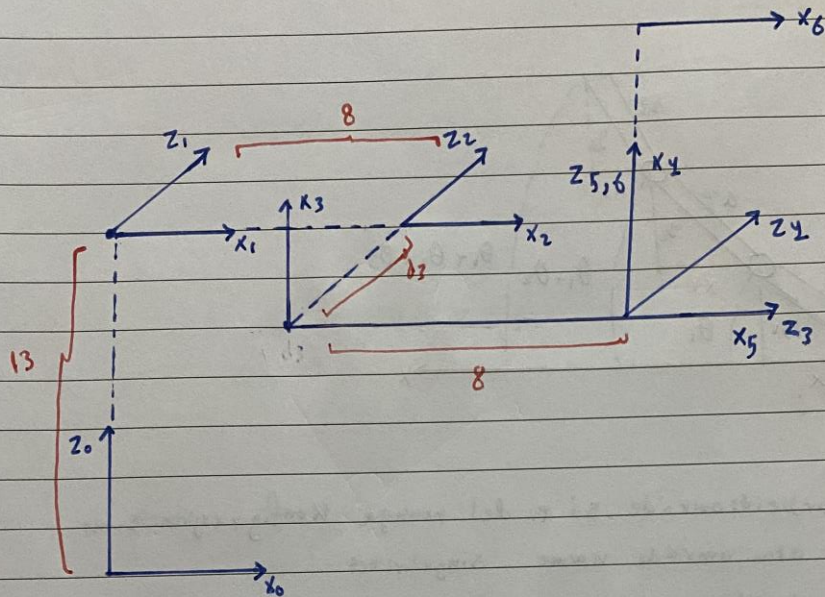 x6
8
z1
z2
z5,6
x4
x3
x1
x2
z4
d3
13
x5
z3
8
z0
x0